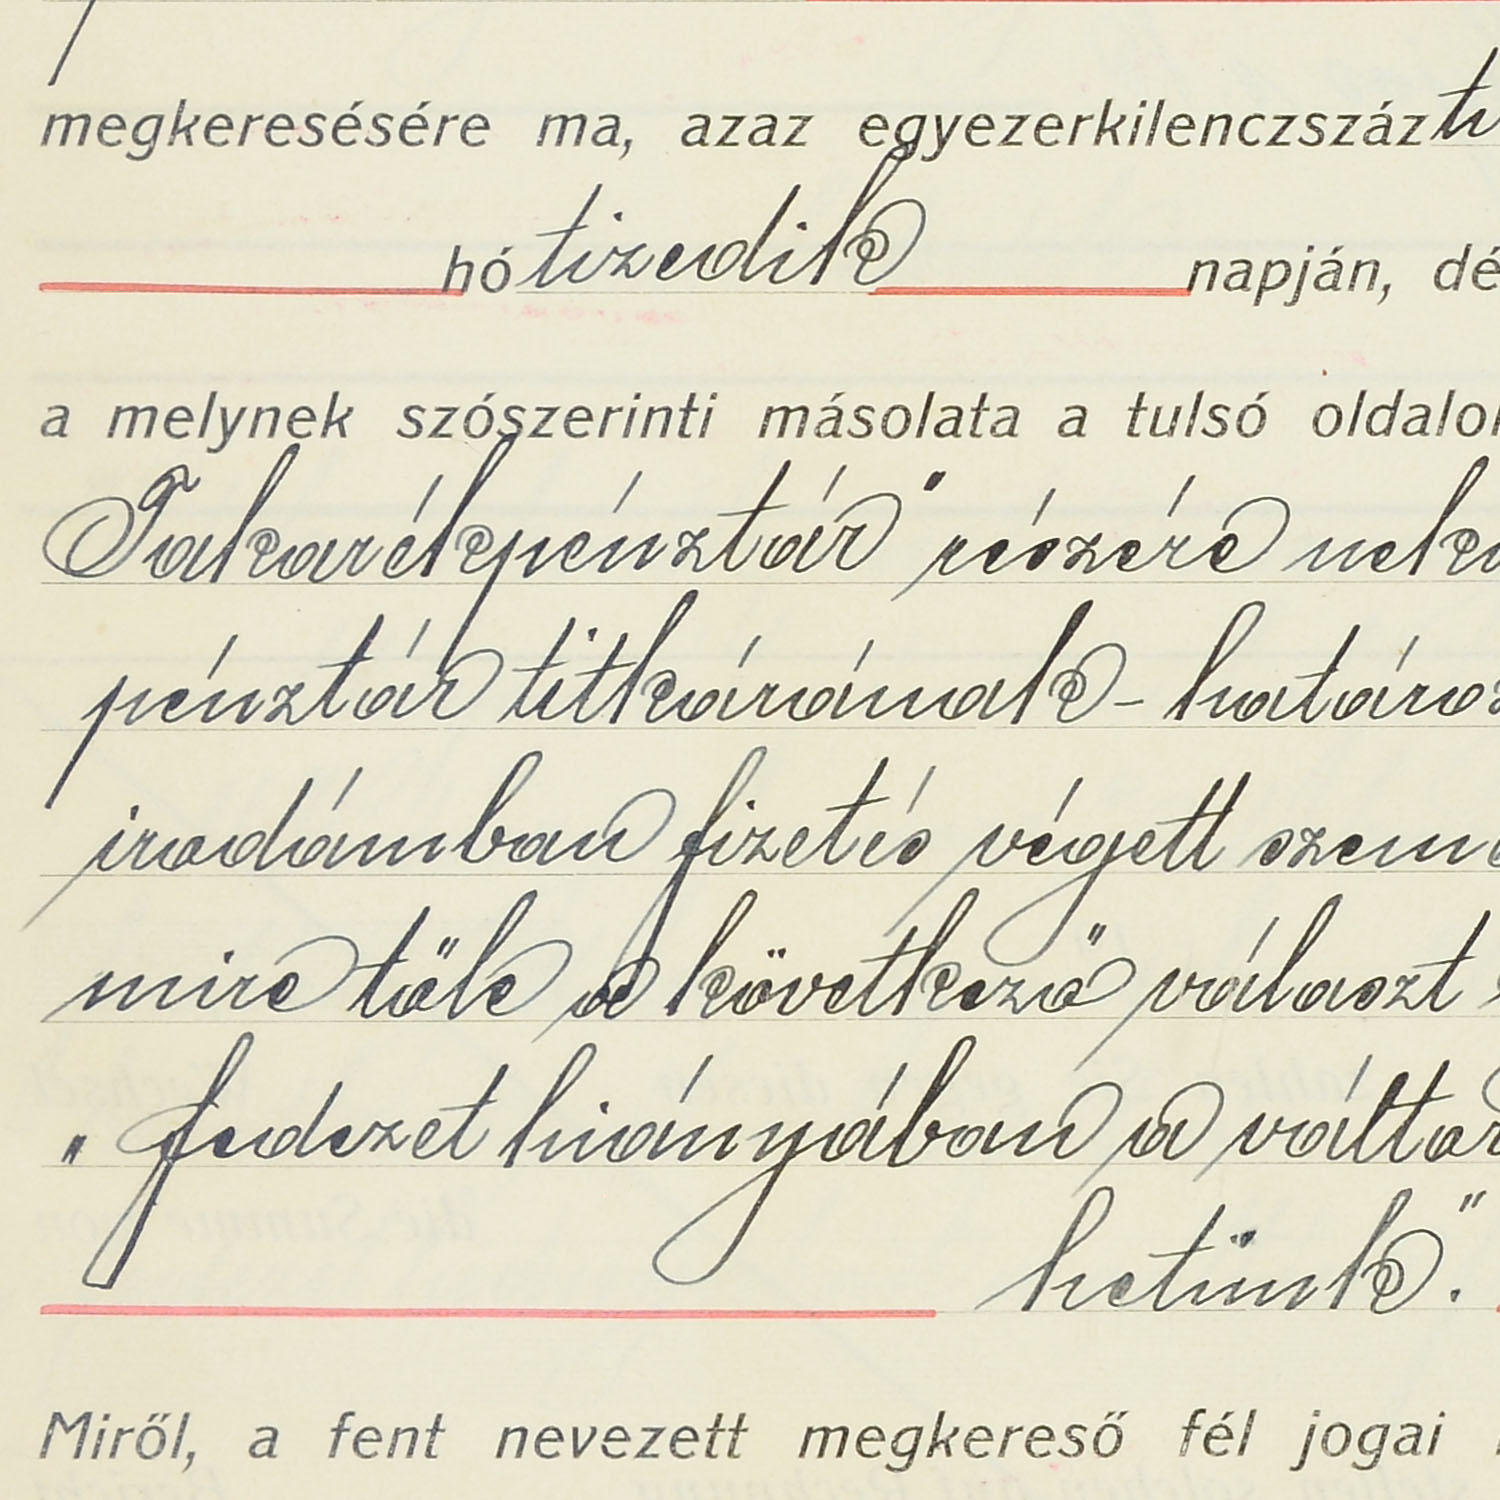 megkeresésére ma, azaz egyezerkilenczszázti
hó tizedik napján, dé
a melynek szószerinti másolata a tulsó oldalon
Takarékpénztár" részére neki
pénztár titkárának - határoz
irodámban fizetés végett szeme
mire tőle a következő választ
„fedezet hiányában a váltar
hetünk."
Miről, a fent nevezett megkereső fél jogai